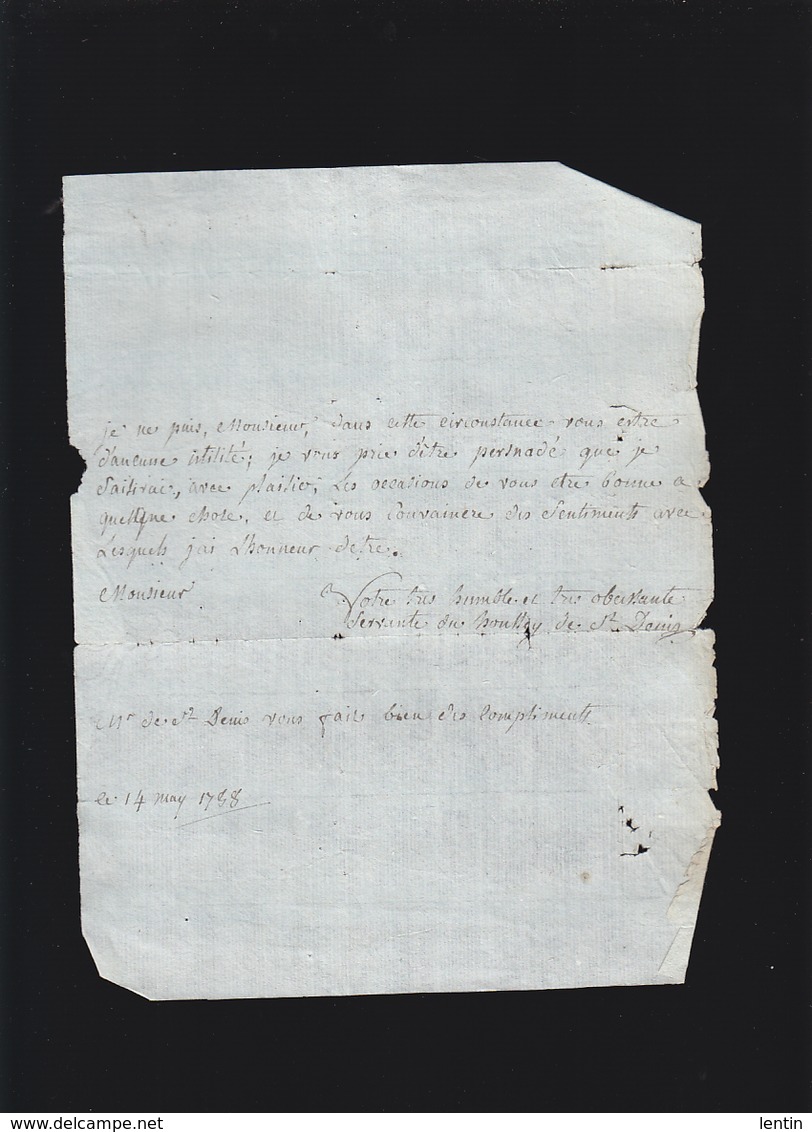 je ne puis, Monsieur, dans cette circonstance vous estre
d'aucune utilité; je vous prie d'être persuadé que je
saisirai, avec plaisir, les occasions de vous etre bonne a
quelque chose, et de vous convaincre des sentiments avec
lesquels jai l'honneur detre.
Monsieur
Votre tres humble et tres obeissante
servante du houssay de St. Denis
Mr de St Denis vous fait bien des compliments
le 14 may 1788
delcampe.net
lentin